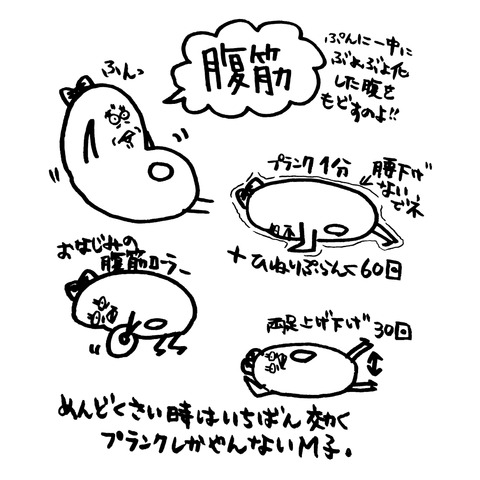 腹筋
ぷんに一中に
ぶよぶよ化
した腹を
もどすのよ!!
ふんっ
プランク1分
腰下げ
ないでネ
+ひねりぷらんく60回
おなじみの
腹筋ローラー
両足上げ下げ30回
めんどくさい時はいちばん効く
プランクしかやんないM子。